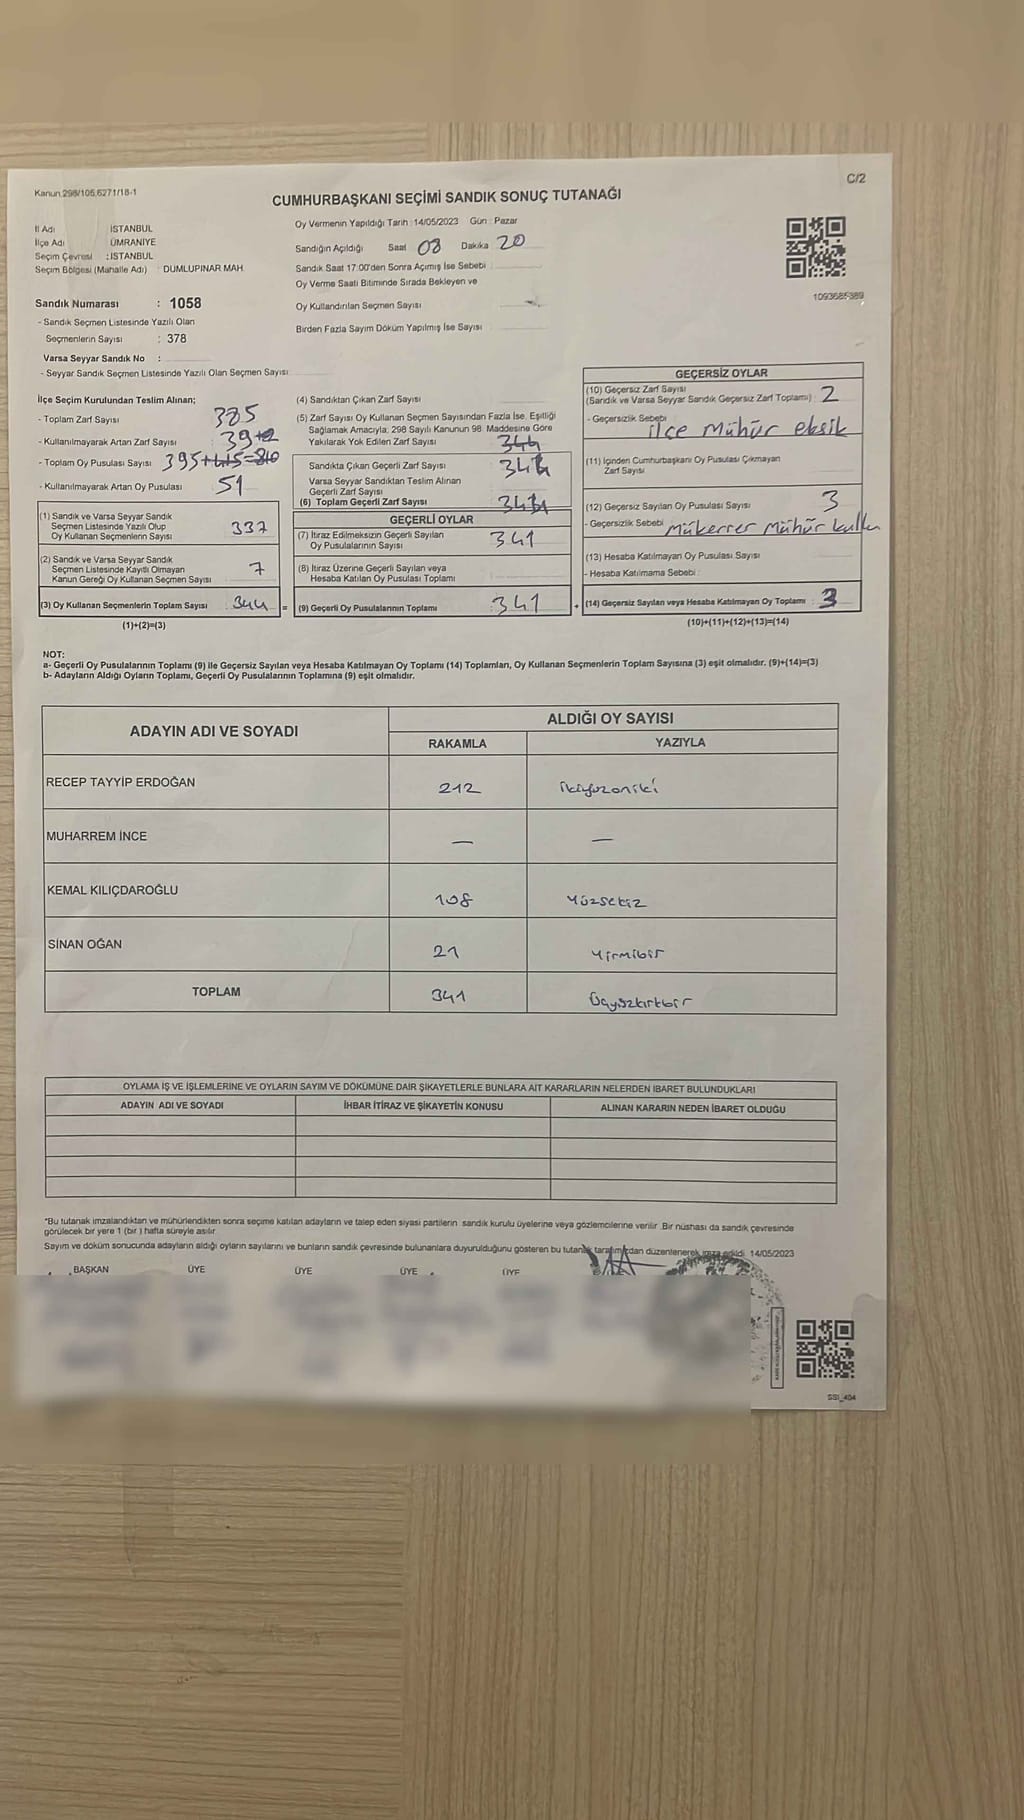 Kanun 298/105,6271/18-1
C/2
CUMHURBAŞKANI SEÇİMİ SANDIK SONUÇ TUTANAĞI
İl Adı İSTANBUL
İlçe Adı ÜMRANİYE
Seçim Çevresi : İSTANBUL
Seçim Bölgesi (Mahalle Adı) : DUMLUPINAR MAH.
Sandık Numarası : 1058
- Sandık Seçmen Listesinde Yazılı Olan
Seçmenlerin Sayısı : 378
Varsa Seyyar Sandık No :
- Seyyar Sandık Seçmen Listesinde Yazılı Olan Seçmen Sayısı:
Oy Vermenin Yapıldığı Tarih : 14/05/2023 Gün : Pazar
Sandığın Açıldığı Saat 08 Dakika 20
Sandık Saat 17:00'den Sonra Açımış İse Sebebi :
Oy Verme Saati Bitiminde Sırada Bekleyen ve
Oy Kullandırılan Seçmen Sayısı
Birden Fazla Sayım Döküm Yapılmış İse Sayısı
1093685389
İlçe Seçim Kurulundan Teslim Alınan;
- Toplam Zarf Sayısı 385
- Kullanılmayarak Artan Zarf Sayısı 39
- Toplam Oy Pusulası Sayısı 395
- Kullanılmayarak Artan Oy Pusulası 51
(1) Sandık ve Varsa Seyyar Sandık
Seçmen Listesinde Yazılı Olup
Oy Kullanan Seçmenlerin Sayısı 337
(2) Sandık ve Varsa Seyyar Sandık
Seçmen Listesinde Kayıtlı Olmayan
Kanun Gereği Oy Kullanan Seçmen Sayısı 7
(3) Oy Kullanan Seçmenlerin Toplam Sayısı : 344 =
(1)+(2)=(3)
(4) Sandıktan Çıkan Zarf Sayısı
(5) Zarf Sayısı Oy Kullanan Seçmen Sayısından Fazla İse, Eşitliği
Sağlamak Amacıyla; 298 Sayılı Kanunun 98. Maddesine Göre
Yakılarak Yok Edilen Zarf Sayısı 344
Sandıkta Çıkan Geçerli Zarf Sayısı
Varsa Seyyar Sandıktan Teslim Alınan
Geçerli Zarf Sayısı
(6) Toplam Geçerli Zarf Sayısı
GEÇERLİ OYLAR
(7) İtiraz Edilmeksizin Geçerli Sayılan
Oy Pusulalarının Sayısı : 341
(8) İtiraz Üzerine Geçerli Sayılan veya
Hesaba Katılan Oy Pusulası Toplamı
(9) Geçerli Oy Pusulalarının Toplamı : 341 +
GEÇERSİZ OYLAR
(10) Geçersiz Zarf Sayısı
(Sandık ve Varsa Seyyar Sandık Geçersiz Zarf Toplamı) : 2
- Geçersizlik Sebebi : ilçe Mühür eksik
(11) İçinden Cumhurbaşkanı Oy Pusulası Çıkmayan
Zarf Sayısı
(12) Geçersiz Sayılan Oy Pusulası Sayısı 3
- Geçersizlik Sebebi : Mükerrer Mühür kullan
(13) Hesaba Katılmayan Oy Pusulası Sayısı
- Hesaba Katılmama Sebebi :
(14) Geçersiz Sayılan veya Hesaba Katılmayan Oy Toplamı : 3
(10)+(11)+(12)+(13)=(14)
NOT:
a- Geçerli Oy Pusulalarının Toplamı (9) ile Geçersiz Sayılan veya Hesaba Katılmayan Oy Toplamı (14) Toplamları, Oy Kullanan Seçmenlerin Toplam Sayısına (3) eşit olmalıdır. (9)+(14)=(3)
b- Adayların Aldığı Oyların Toplamı, Geçerli Oy Pusulalarının Toplamına (9) eşit olmalıdır.
ADAYIN ADI VE SOYADI ALDIĞI OY SAYISI
RAKAMLA YAZIYLA
RECEP TAYYİP ERDOĞAN 212 ikiyüzoniki
MUHARREM İNCE — —
KEMAL KILIÇDAROĞLU 108 Yüzsekiz
SİNAN OĞAN 21 Yirmibir
TOPLAM 341 Üçyüzkırkbir
OYLAMA İŞ VE İŞLEMLERİNE VE OYLARIN SAYIM VE DÖKÜMÜNE DAİR ŞİKAYETLERLE BUNLARA AİT KARARLARIN NELERDEN İBARET BULUNDUKLARI
ADAYIN ADI VE SOYADI İHBAR İTİRAZ VE ŞİKAYETİN KONUSU ALINAN KARARIN NEDEN İBARET OLDUĞU
*Bu tutanak imzalandıktan ve mühürlendikten sonra seçime katılan adayların ve talep eden siyasi partilerin sandık kurulu üyelerine veya gözlemcilerine verilir. Bir nüshası da sandık çevresinde
görülecek bir yere 1 (bir) hafta süreyle asılır.
Sayım ve döküm sonucunda adayların aldığı oyların sayılarını ve bunların sandık çevresinde bulunanlara duyurulduğunu gösteren bu tutanak tarafımızdan düzenlenerek imza edildi. 14/05/2023
BAŞKAN ÜYE ÜYE ÜYE ÜYE
SSI_404